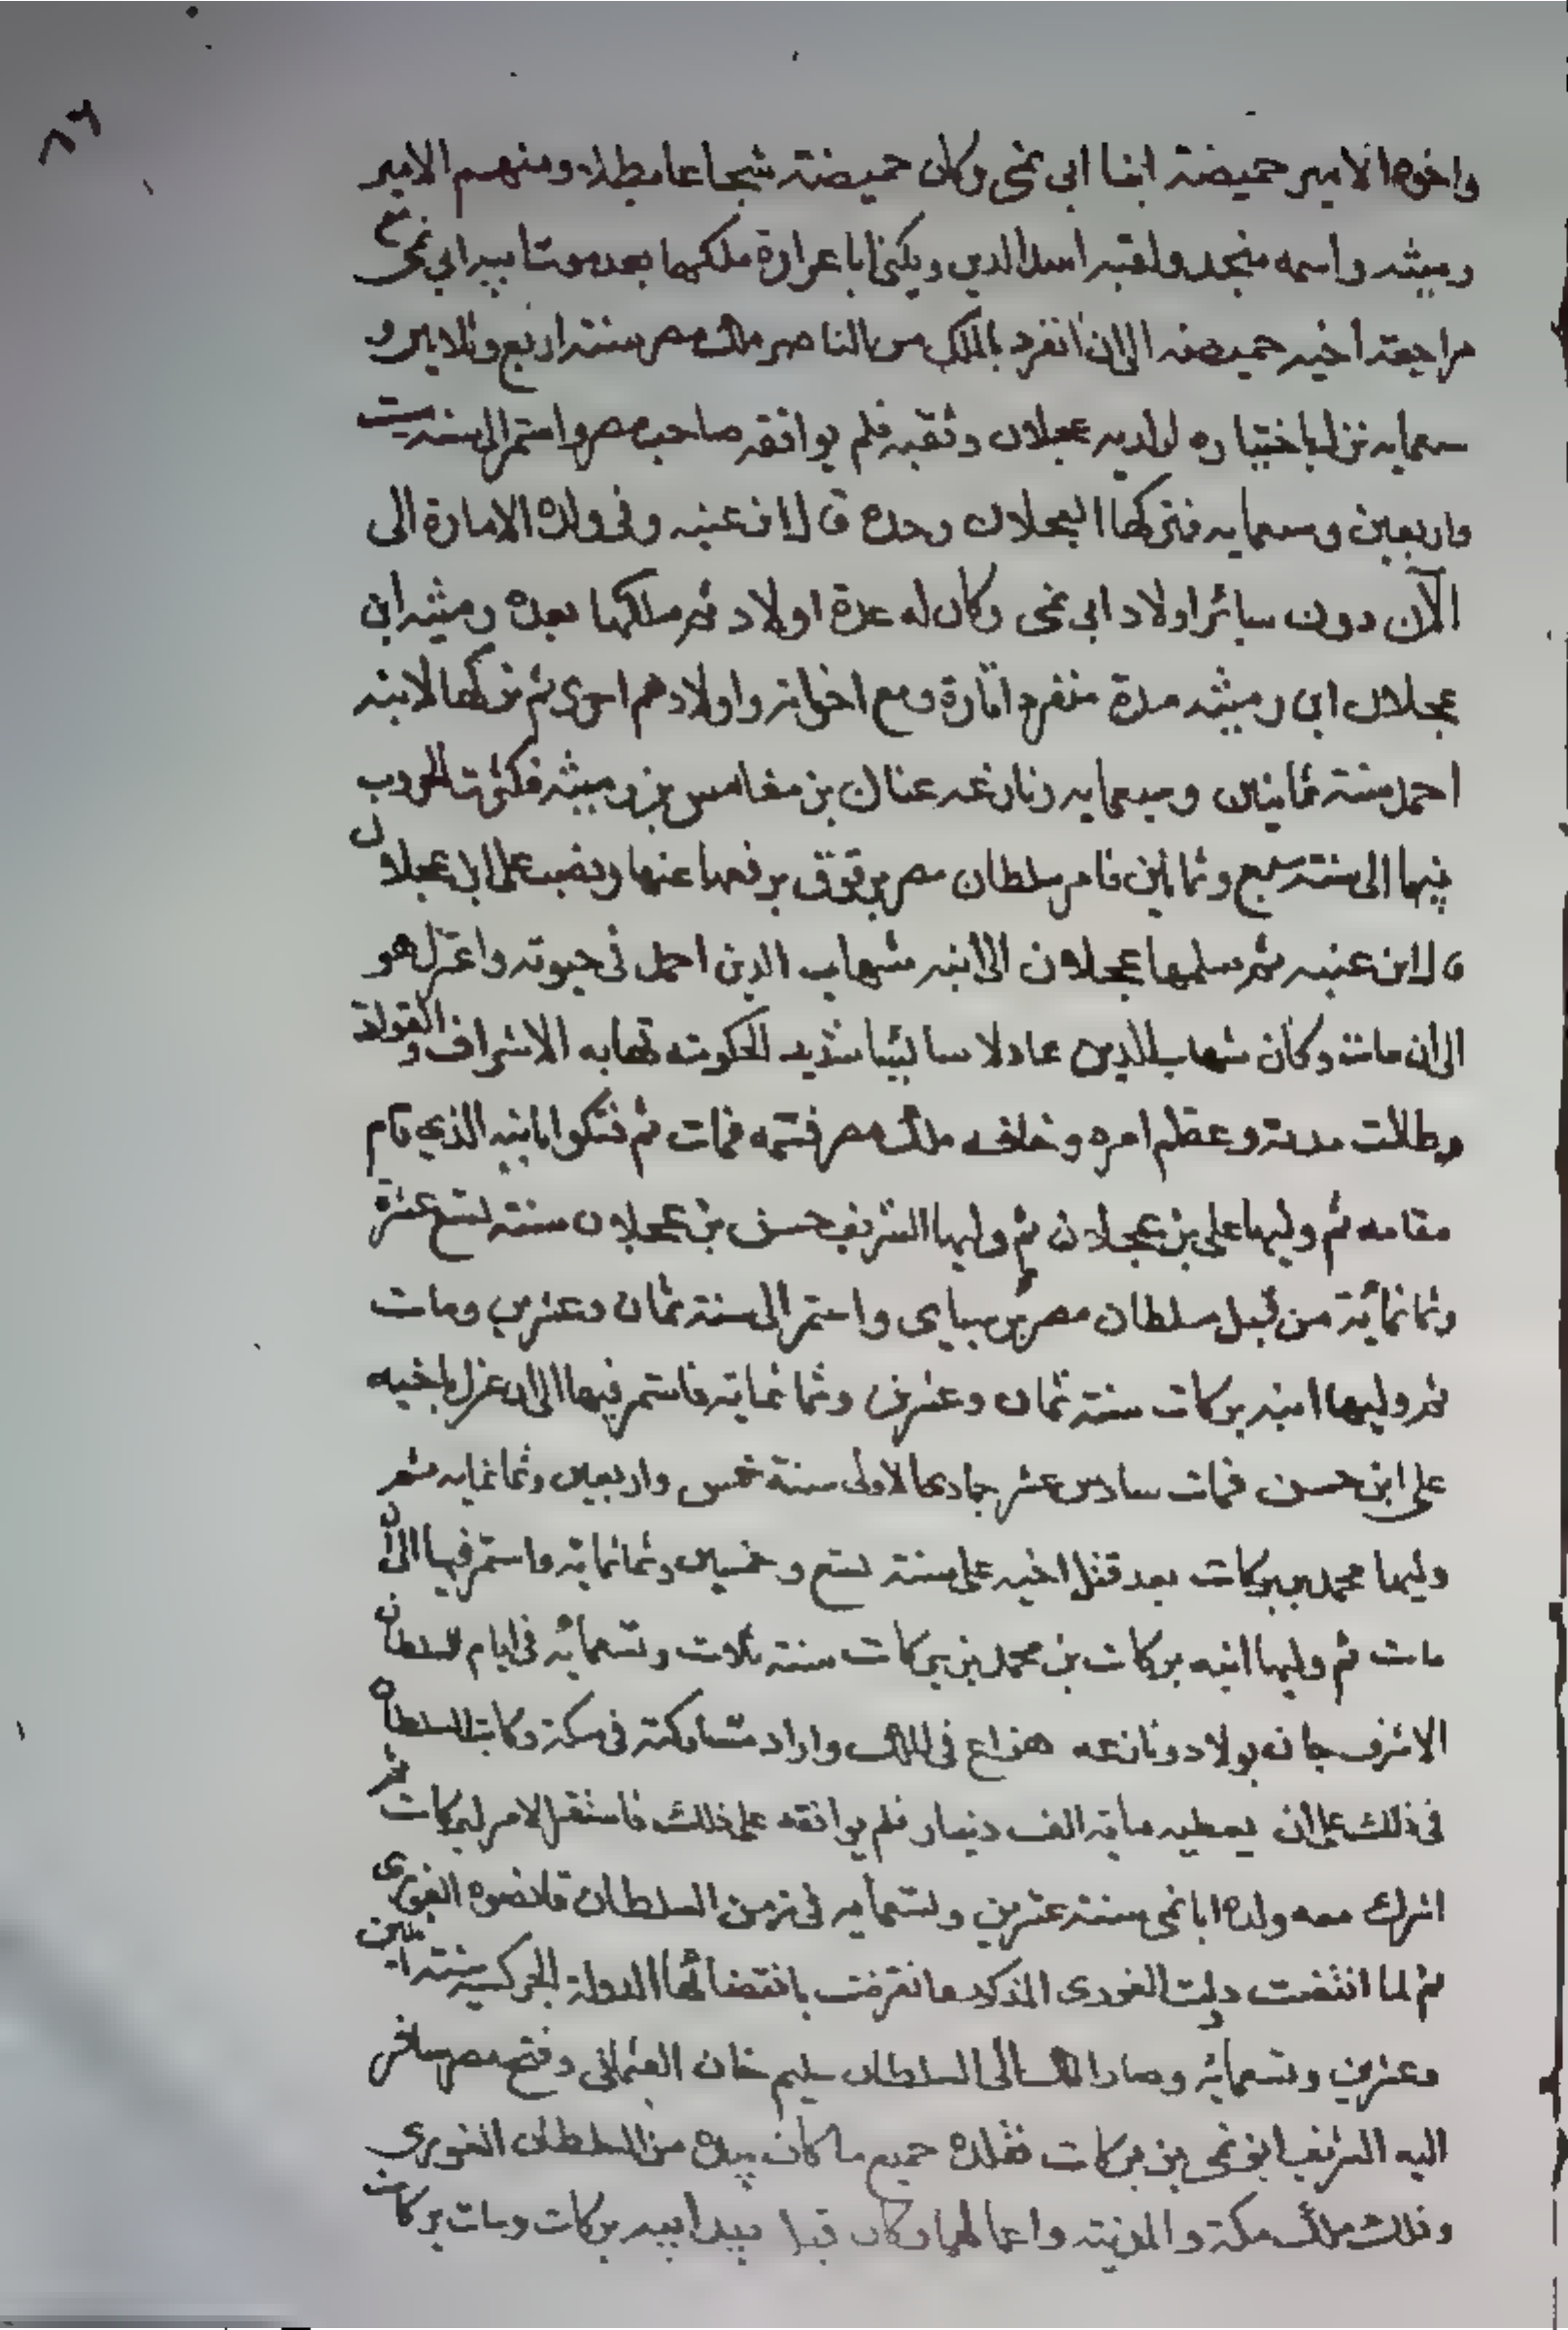 ٨٦
واخوها الامير حميضة ابنا ابي نمى وكان حميضة شجاعا بطلا ومنهم الامير
رميثه واسمه منجد ولقبه اسد الدين ويكنى ابا عرادة ملكها بعد موت ابيه ابي نمى مع
مراجعة اخيه حميضه الى ان انفرد بالملك من الناصر ملك مصر سنة اربع وثلاثين و
سبعمايه نزل باختياره لولديه عجلان وثقبه فلم يوافقه صاحب مصر واستمر الى سنه ست
واربعين وسبعمايه فتركها لعجلان وحده قال ابن عنبه وفى ولده الامارة الى
الآن دون سائر اولاد ابى نمى وكان له عدة اولاد ثم ملكها بعده رميثه ابن
عجلان ابن رميثه مدة منفرد اتارة ومع اخوانه واولادهم اخرى ثم تركها لابنه
احمد سنة ثمانين وسبعمايه ونازعه عنان بن مغامس بن رميثه فكثرت الحروب
فيها الى سنة سبع وثمانين فامر سلطان مصر برقوق برفعها عنها ونصب على ابن عجلان
قال ابن عنبه ثم سلمها عجلان الى ابنه شهاب الدين احمد فى حيوته واعتزل هو
الى ان مات وكان شهاب الدين عادلا سائسا شديد الحكومه تهابه الاشراف و القواد
وطالت مدته وعظم امره وخافه ملك مصر فسمه فمات ثم فتكوا بابنه الذي قام
مقامه ثم وليها على بن عجلان ثم وليها الشريف حسن بن عجلان سنة تسع عشرة
وثمانمائة من قبل سلطان مصر برسباى واستمر الى سنة ثمان وعشرين ومات
ثم وليها ابنه بركات سنة ثمان وعشرين وثمانماية فاستمر فيها الى ان عزل باخيه
على ابن حسن فمات سادس عشر جمادى الاولى سنة خمس واربعين وثمانمايه ثم
وليها محمد بن بركات بعد قتل اخيه على سنة تسع وخمسين وثمانماية واستمر فيها الى ان
مات ثم وليها ابنه بركات بن محمد بن بركات سنة ثلاث وتسعمائه فى ايام السلطان
الاشرف جانه بولاد ونازعه هزاع فى الملك واراد مشاركته فى مكة وكاتب السلطان
فى ذلك على ان يعطيه ماية الف دينار فلم يوافقه على ذلك فاستقل الامر لبركات ثم
اشرك معه ولده ابا نمى سنة عشرين وتسعمايه فى زمن السلطان قانصوه الغورى
ثم لما انقضت دولت الغورى المذكور وانقرضت بانقضائها الدولة الجركسيه سنة اثنين
وعشرين وتسعمائه وصار الملك الى السلطان سليم خان العثمانى وفتح مصر سافر
اليه الشريف ابو نمى بن بركات فقلده جميع ما كان بيده من السلطان الغورى
وذلك ملك مكة والمدينه واعمالهما وكان قبل بيد ابيه بركات ومات بركات